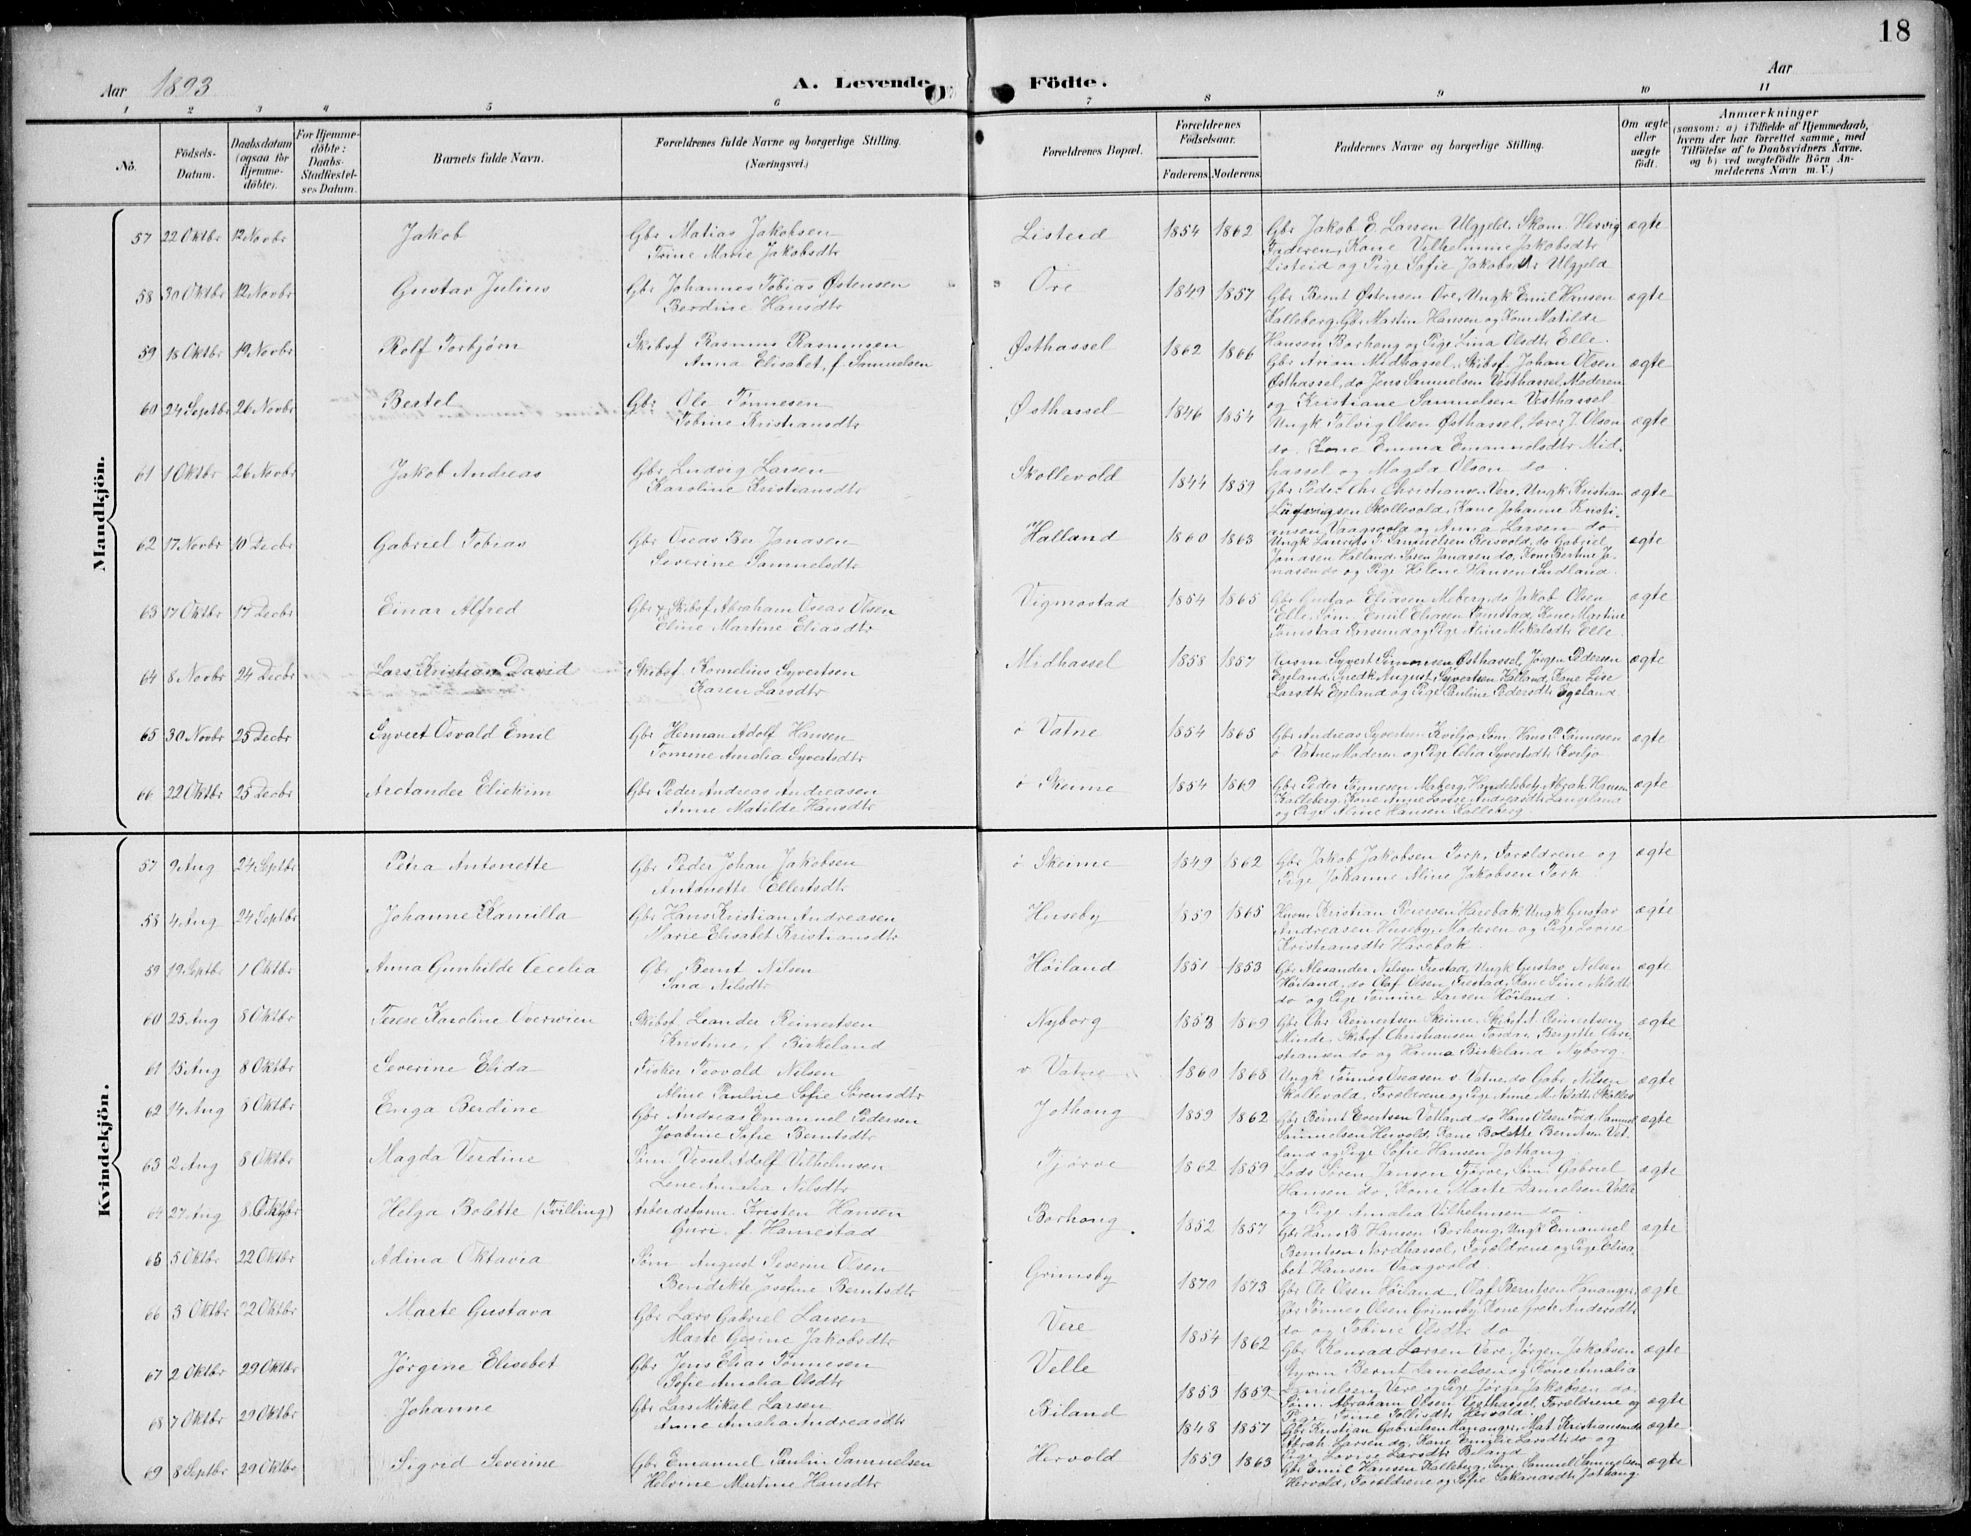 18
Aar 1893
A. Levende Födte.
Aar
1 2 3 4 5 6 7 8 9 10 11
No.
Födsels-Datum.
Daabsdatum (ogsaa för Hjemme-döbte).
For Hjemme-döbte: Daabs-Stadfæstel-ses Datum.
Barnets fulde Navn.
Forældrenes fulde Navne og borgerlige Stilling.
(Næringsvei.)
Forældrenes Bopæl.
Forældrenes Födselsaar.
Faderens. Moderens.
Faddernes Navne og borgerlige Stilling.
Om ægte eller uægte födt.
Anmærkninger
(saasom: a) i Tilfælde af Hjemmedaab,
hvem der har forrettet samme, med
Tilföielse af to Daabsvidners Navne.
og b) ved uægtefödte Börn An-
melderens Navn m. V.)
Mandkjön.
57 22 Oktbr 12 Novbr Jakob Gbr Matias Jakobsen Listeid 1854 1862 Gbr Jakob E. Larsen Ulgjeld, Skom. Hervig ægte
Trine Marie Jakobsdtr Faderen, Kone Vilhelmine Jakobsdtr
Listeid og Pige Sofie Jakobsdtr Ulgjeld
58 30 Oktbr 12 Novbr Gustav Julius Gbr Johannes Tobias Østensen Ore 1849 1857 Gbr Bernt Østensen Ore, Ungk Emil Hansen ægte
Berdine Hansdtr Kalleberg, Gbr Martin Hansen og Kone Matilde
Hansen Borhaug og Pige Lina Olsdtr Elle.
59 18 Oktbr 19 Novbr Rolf Torbjørn Skibsf Rasmus Rasmussen Østhassel 1862 1866 Gbr Midhassel, Skibsf. Johan Olsen ægte
Anna Elisabet, f. Samuelsen Østhassel, do Jens Samuelsen Vesthassel, Moderen
og Kristiane Samuelsen Vesthassel
60 24 Septbr 26 Novbr Bertel Gbr Ole Tønnesen Østhassel 1846 1854 Ungk Olsen Østhassel, J. Olsen ægte
Tobine Kristiansdtr do. Kone Emma Emanuelsdtr Mid-
hassel og Magda Olsen do.
61 1 Oktbr 26 Novbr Jakob Andreas Gbr Ludvig Larsen Skollevold 1844 1859 Gbr Peder Chr Christians. Vere, Ungk Kristian ægte
Karoline Kristiansdtr Skollevold, Kone Johanne Kristi-
ansen Vaagsvold og Anna Larsen do
62 17 Novbr 10 Decbr Gabriel Tobias Gbr Oseas Ber Jonasen Halland 1860 1863 Ungk Samuelsen do Gabriel ægte
Severine Samuelsdtr Jonasen Halland, Søren Jonasen do, Kone Bertine Jo-
nasen do og Pige Helene Hansen
63 17 Oktbr 17 Decbr Einar Alfred Gbr & Skibsf. Abraham Oseas Olsen Vigmostad 1854 1865 Gbr Gustav Eliasen Meberg, do Jakob Olsen ægte
Eline Martine Eliasdtr Elle, Søm. Emil Eliasen Tomstad, Kone Martine
og Pige Aline Mikalsdtr Elle.
64 8 Novbr 24 Decbr Lars Kristian David Skibsf. Kornelius Syvertsen Midhassel 1858 1857 Husm. Syvert Simonsen Østhassel, Jørgen Pedersen ægte
Karen Larsdtr Egeland, August Syvertsen Halland, Kone Lise
Larsdtr Egeland og Pige Pauline Pedersdtr Egeland
65 30 Novbr 25 Decbr Syvert Osvald Emil Gbr Herman Adolf Hansen ö Vatne 1854 1865 Gbr Andreas Syvertsen Kviljo, Søm. Hans P. Tønnesen ægte
Tomine Amalia Syvertsdtr ö Vatne, Moderen og Pige Syvertsdtr Kviljo
66 22 Oktbr 25 Decbr Arctander Eliekim Gbr Peder Andreas Andreasen ö Skeime 1854 1869 Gbr Peder Tønnesen Maberg, Abrah. Hansen ægte
Anne Matilde Hansdtr Kalleberg, Kone Anne Lovise Andreasdtr Langeland
og Pige Aline Hansen Kalleberg
Kvindekjön.
57 9 Aug 24 Septbr Petra Antonette Gbr Peder Johan Jakobsen ö Skeime 1849 1862 Gbr Jakob Jakobsen Torp, Forældrene og ægte
Antonette Ellertsdtr Pige Johanne Aline Jakobsen Torp.
58 4 Aug 24 Septbr Johanne Kamilla Gbr Hans Kristian Andreasen Huseby 1859 1865 Husm. Kristian Reiersen Harebak, Ungk Gustav ægte
Marie Elisabet Kristiansdtr Andreasen Huseby, Moderen og Pige Lovise
Kristiansdtr Harebak.
59 19 Septbr 1 Oktbr Anna Gunhilde Cecelia Gbr Bernt Nilsen Høiland 1851 1853 Gbr Alexander Nilsen Frestad, Ungk Gustav Nilsen ægte
Tara Nilsdtr Høiland, do Olaf Olsen Frestad, Kone Sine Nilsdtr
do og Pige Tomine Larsen Høiland.
60 25 Aug 8 Oktbr Terese Karoline Overwien Skibsf Leander Reinertsen Nyborg 1853 1869 Gbr Chr Reinertsen Skeime, Skibsf. A. Reinertsen ægte
Kristine, f. Birkeland Minde, Skibsf Christiansen Bergitte Chri-
stiansen do og Hanna Birkeland Nyborg.
61 15 Aug 8 Oktbr Severine Elida Fisker Teovald Nilsen v Vatne 1860 1868 Ungk Tønnes Oseasen v. Vatne, do Gabr. Nilsen ægte
Aline Pauline Sofie Sørensdtr Skollevold, Forældrene og Pige Anne M. Nilsdtr Skollev
62 14 Aug 8 Oktbr Enga Berdine Gbr Andreas Emanuel Pedersen Jothaug 1859 1862 Gbr Bernt Evertsen Vetland, do Hans Olsen ægte
Joabine Sofie Berntsdtr Samuelsen Hervold, Kone Bolette Berntsen Vet-
land og Pige Sofie Hansen Jothaug
63 2 Aug 8 Oktbr Magda Verdine Søm. Vessel Adolf Vilhelmsen Tjørve 1862 1859 Lods Søren Jansen Tjørve, Søm. Gabriel ægte
Lene Amalia Nilsdtr Hansen do, Kone Marte Danielsen Velle
og Pige Amalia Vilhelmsen do.
64 27 Aug 8 Oktbr Helga Bolette (Tvilling) Arbeidsform. Kristen Hansen Borhaug 1852 1857 Gbr Hans B. Hansen Borhaug, Ungk Emanuel ægte
Guri, f. Hamestad Berntsen Nordhassel, Forældrene og Pige Elisa-
bet Hansen Vaagsvold.
65 5 Oktbr 22 Oktbr Adina Oktavia Søm August Severin Olsen Grimsby 1870 1873 Gbr Ole Olsen Høiland, Olaf Berntsen Hananger, ægte
Bendikte Josefine Berntsdtr Gbr Tønnes Olsen Grimsby, Kone Grete Andersdtr
do og Tobine Olsdtr do
66 3 Oktbr 22 Oktbr Marte Gustava Gbr Lars Gabriel Larsen Vere 1854 1862 Gbr Konrad Larsen Vere, Jørgen Jakobsen ægte
Marte Gesine Jakobsdtr Bernt Danielsen og Kone Amalia
Danielsen, Vere og Pige Jakobsen do.
67 2 Oktbr 29 Oktbr Jørgine Elisebet Gbr Jens Elias Tønnesen Velle 1853 1859 Søm. Abraham Olsen Vesthassel, Forældrene og ægte
Sofie Amalia Olsdtr Pige Tomine Hervold.
68 7 Oktbr 29 Oktbr Johanne Gbr Lars Mikal Larsen Biland 1848 1857 Gbr Kristian Gabrielsen Hananger, Mat. Kristiansen do ægte
Anne Amalia Andreasdtr Abrah. Larsen do, Kone Emilie Larsdtr do og
Pige Lovise Larsdtr Biland
69 8 Septbr 29 Oktbr Sigrid Severine Gbr Emanuel Paulin Samuelsen Hervold 1859 1863 Gbr Emil Hansen Kalleberg, Søm. Samuel Samuelsen ægte
Helvine Martine Hansdtr Hervold, Forældrene og Sofie Sakariasdtr Jothaug